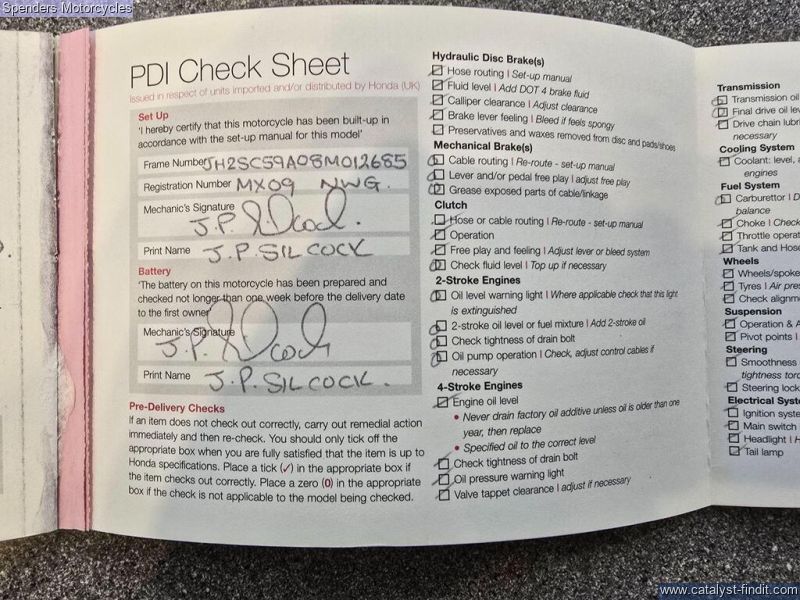 Spenders Motorcycles
PDI Check Sheet
Issued in respect of units imported and/or distributed by Honda (UK)
Set Up
'I hereby certify that this motorcycle has been built-up in
accordance with the set-up manual for this model'
Frame Number JH2SC59A08M012685
Registration Number MX09 NWG.
Mechanic's Signature J.P. Silcock.
Print Name J.P. SILCOCK
Battery
'The battery on this motorcycle has been prepared and
checked not longer than one week before the delivery date
to the first owner'
Mechanic's Signature J.P. Silcock
Print Name J.P. SILCOCK.
Pre-Delivery Checks
If an item does not check out correctly, carry out remedial action
immediately and then re-check. You should only tick off the
appropriate box when you are fully satisfied that the item is up to
Honda specifications. Place a tick (✓) in the appropriate box if
the item checks out correctly. Place a zero (0) in the appropriate
box if the check is not applicable to the model being checked.
Hydraulic Disc Brake(s)
Hose routing | Set-up manual
Fluid level | Add DOT 4 brake fluid
Calliper clearance | Adjust clearance
Brake lever feeling | Bleed if feels spongy
Preservatives and waxes removed from disc and pads/shoes
Mechanical Brake(s)
Cable routing | Re-route - set-up manual
Lever and/or pedal free play | adjust free play
Grease exposed parts of cable/linkage
Clutch
Hose or cable routing | Re-route - set-up manual
Operation
Free play and feeling | Adjust lever or bleed system
Check fluid level | Top up if necessary
2-Stroke Engines
Oil level warning light | Where applicable check that this light
is extinguished
2-stroke oil level or fuel mixture | Add 2-stroke oil
Check tightness of drain bolt
Oil pump operation | Check, adjust control cables if
necessary
4-Stroke Engines
Engine oil level
• Never drain factory oil additive unless oil is older than one
year, then replace
• Specified oil to the correct level
Check tightness of drain bolt
Oil pressure warning light
Valve tappet clearance | adjust if necessary
Transmission
Transmission oil
Final drive oil
Drive chain
necessary
Cooling System
Coolant: level,
engines
Fuel System
Carburettor |
balance
Choke | Check
Throttle
Tank and
Wheels
Wheels/spoke
Tyres | Air
Check
Suspension
Operation &
Pivot points |
Steering
Smoothness
tightness
Steering lock
Electrical
Ignition
Main switch
Headlight |
Tail lamp
www.catalyst-findit.com